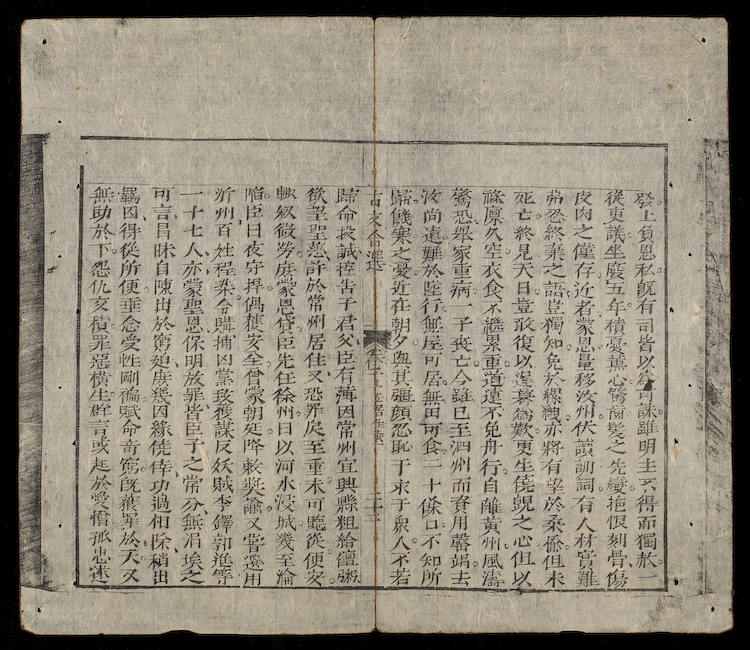 發上負恩私既有司皆以為可誅雖明主不得而獨赦一
從吏議坐廢五年積憂薰心驚齒髮之先變抱恨刻骨傷
皮肉之僅存近者蒙恩量移汝州伏讀訓詞有人材實難
弗忍終棄之語豈獨知免於縲絏亦將有望於桑榆但未
死亡終見天日豈敢復以遲暮為歎更生僥覬之心但以
祿廩久空衣食不繼累重道遠不免舟行自離黃州風濤
驚恐舉家重病一子喪亡今雖已至泗州而資用罄竭去
汝尚遠難於陸行無屋可居無田可食二十餘口不知所
歸饑寒之憂近在朝夕與其彊顏忍恥于求于衆人不若
古文合選 卷七 居住表 二十三
歸命投誠控告于君父臣有薄因常州宜興縣粗給饘粥
欲望聖慈許於常州居住又恐罪戾至重未可聽從便安
輒敘微勞庶蒙恩貸臣先任徐州日以河水浸城幾至淪
陷臣日夜守捍偶獲安全曾蒙朝廷降敕奬諭又嘗選用
沂州百姓程棐令購捕凶黨致獲謀反妖賊李鐸郭進等
一十七人亦蒙聖恩保明放罪皆臣子之常分無涓埃之
可言冒昧自陳出於窮廹庶幾因緣僥倖功過相除稍出
羈囚得從所便重念受性剛褊賦命奇窮既獲罪於天又
無助於下怨仇交積罪惡橫生羣言或起於愛憎孤忠遂